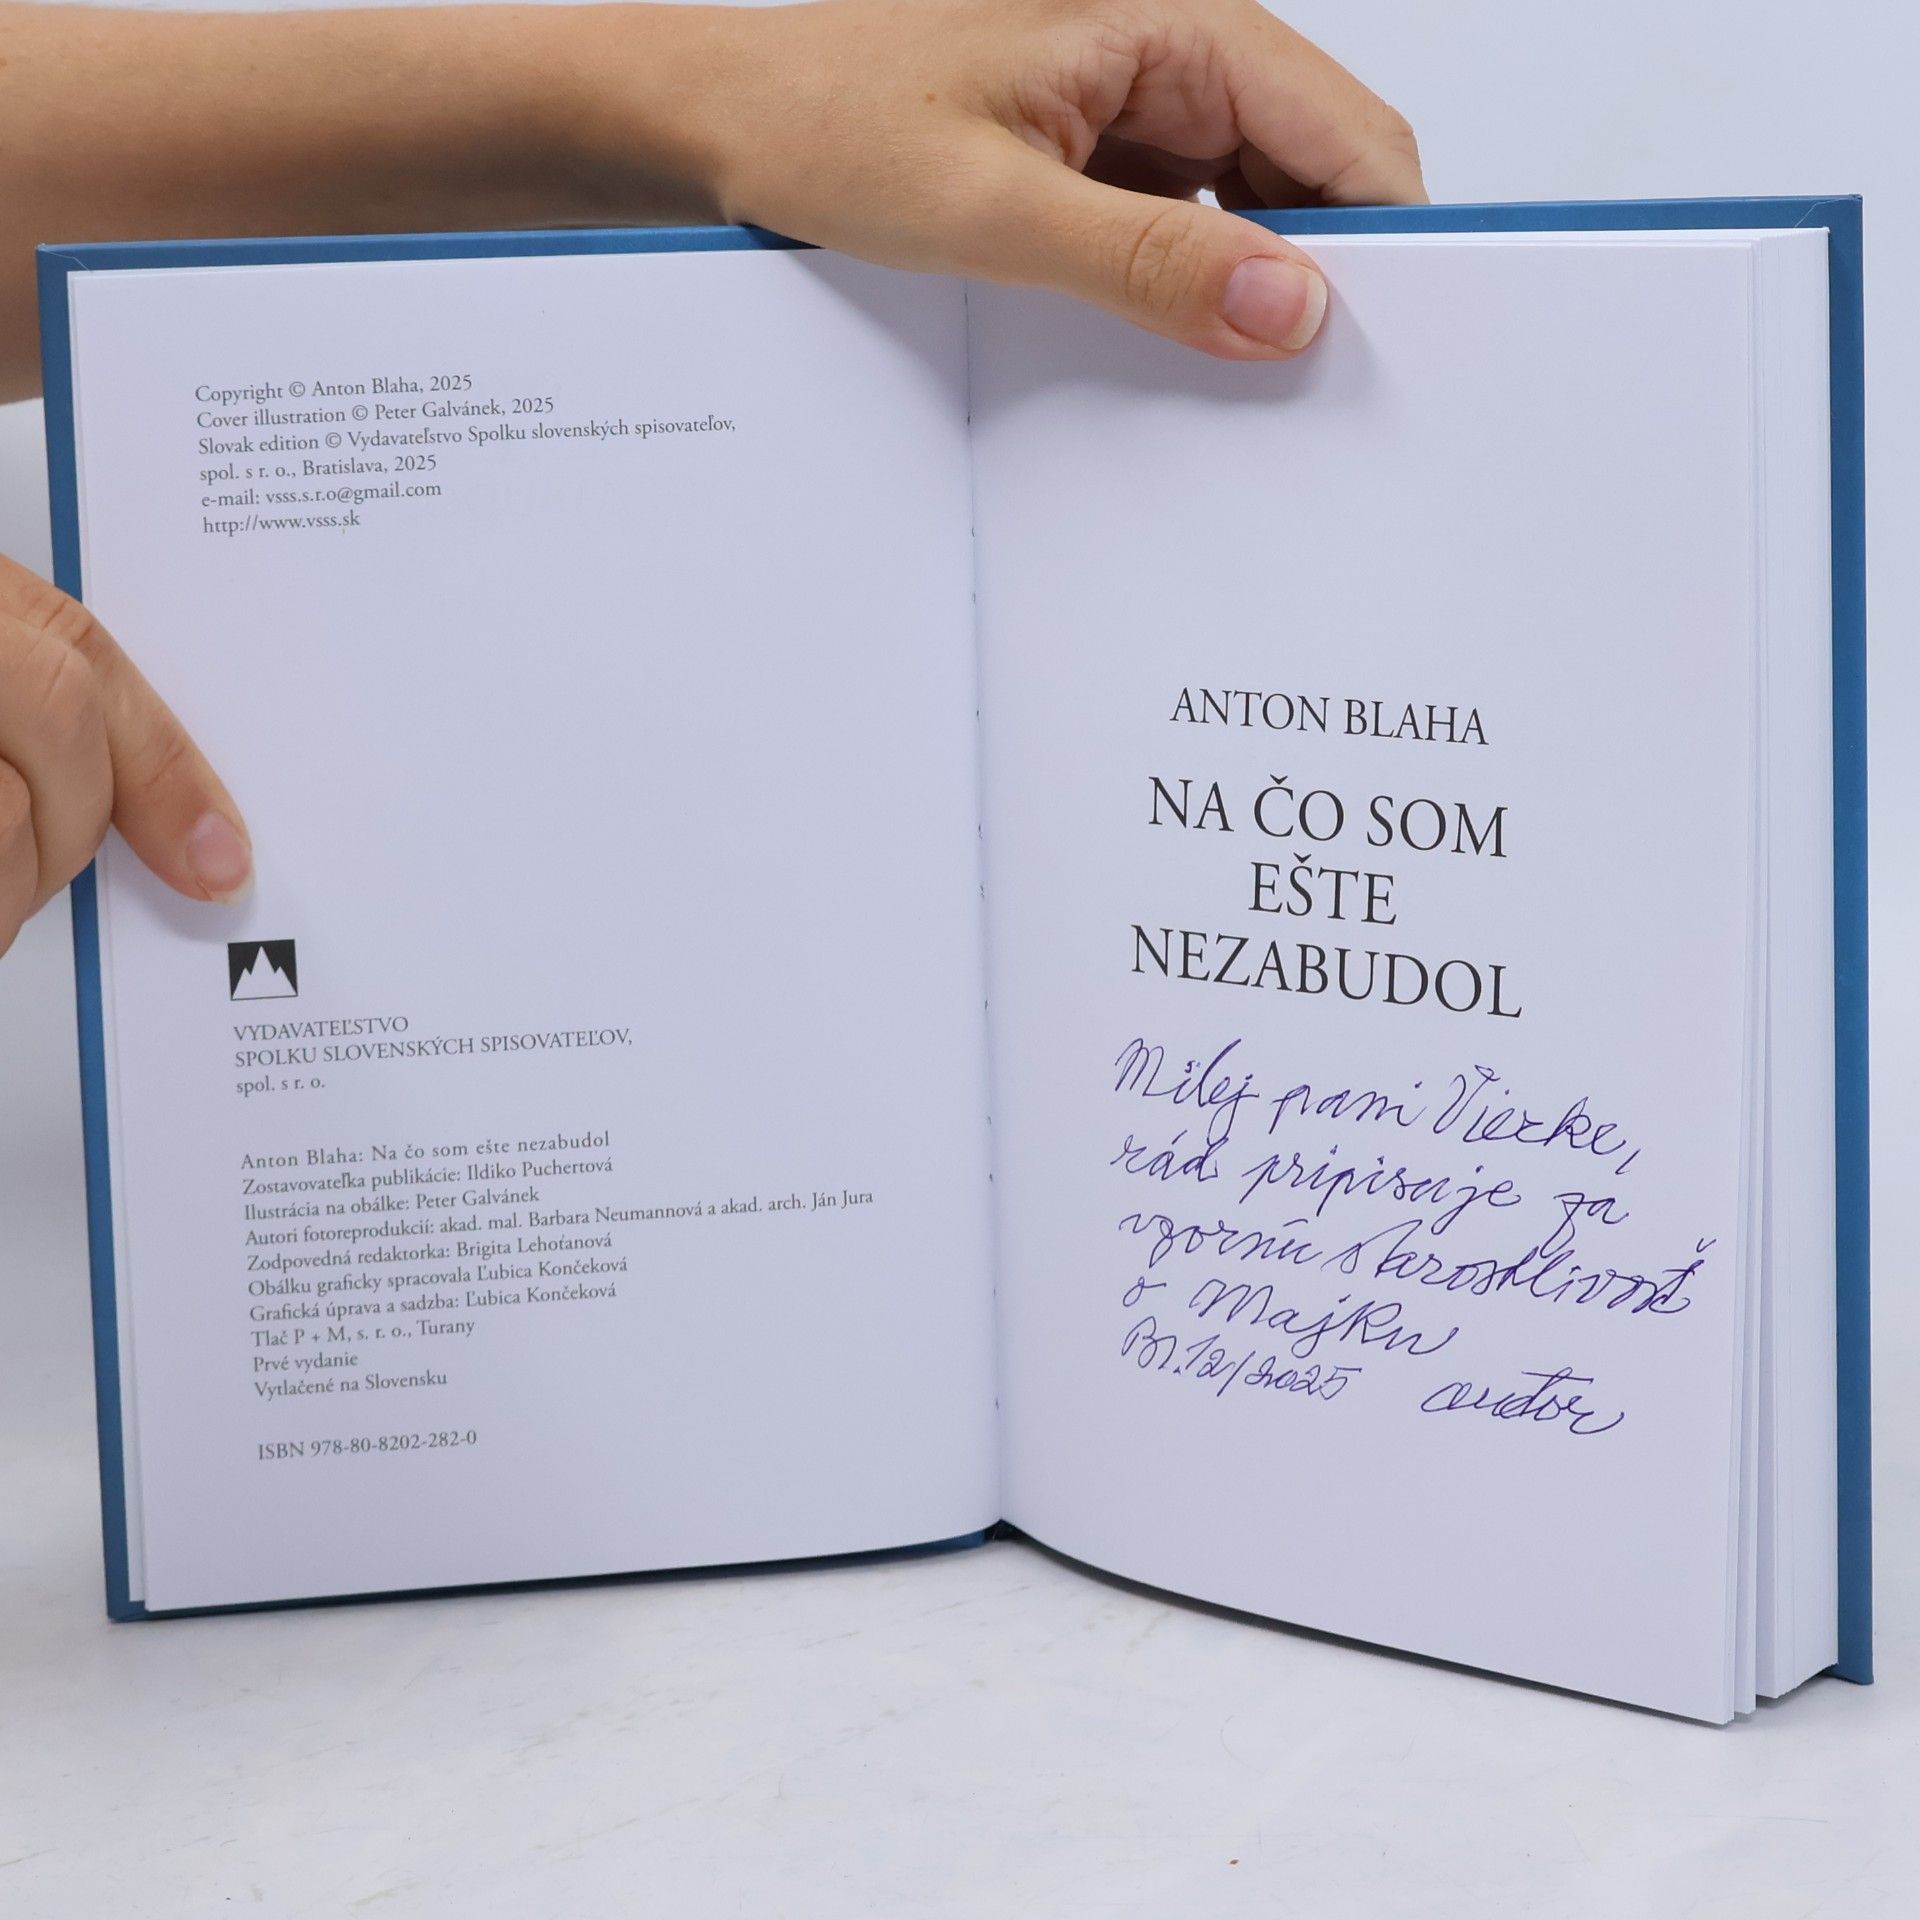 Copyright © Anton Blaha, 2025
Cover illustration © Peter Galvánek, 2025
Slovak edition © Vydavateľstvo Spolku slovenských spisovateľov,
spol. s r. o., Bratislava, 2025
e-mail: vsss.s.r.o@gmail.com
http://www.vsss.sk
VYDAVATEĽSTVO
SPOLKU SLOVENSKÝCH SPISOVATEĽOV,
spol. s r. o.
Anton Blaha: Na čo som ešte nezabudol
Zostavovateľka publikácie: Ildiko Puchertová
Ilustrácia na obálke: Peter Galvánek
Autori fotoreprodukcií: akad. mal. Barbara Neumannová a akad. arch. Ján Jura
Zodpovedná redaktorka: Brigita Lehoťanová
Obálku graficky spracovala Ľubica Končeková
Grafická úprava a sadzba: Ľubica Končeková
Tlač P + M, s. r. o., Turany
Prvé vydanie
Vytlačené na Slovensku
ISBN 978-80-8202-282-0
ANTON BLAHA
NA ČO SOM
EŠTE
NEZABUDOL
Milej pani Vierke,
rád pripisuje za
vzornú starostlivosť
o Majku
Bl. 12/2025 autor